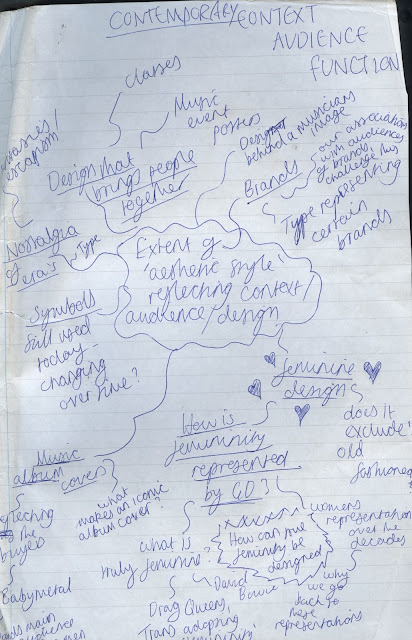 CONTEMPORARY CONTEXT
AUDIENCE
FUNCTION
classes
Music
event
posters
Design that
brings people
together
Design
behind a musicians
image
Brands
our association
with audiences
of brands,
challenge this
Type representing
certain
brands
escapism
Nostalgia
Type
era's
Extent of
'aesthetic style'
reflecting context/
audience/design
Symbols
still used
today -
changing
over time?
feminine
design
does it
exclude?
old
fashioned
How is
femininity
represented
by GD?
Music
album
covers
what
makes an iconic
album cover?
the
Babymetal
what is
truly feminine?
How can true
feminity be
designed
womens
representation
over the
decades
why
we go
back to
these
representations
David
Bowie
Drag Queens,
Trans adopting